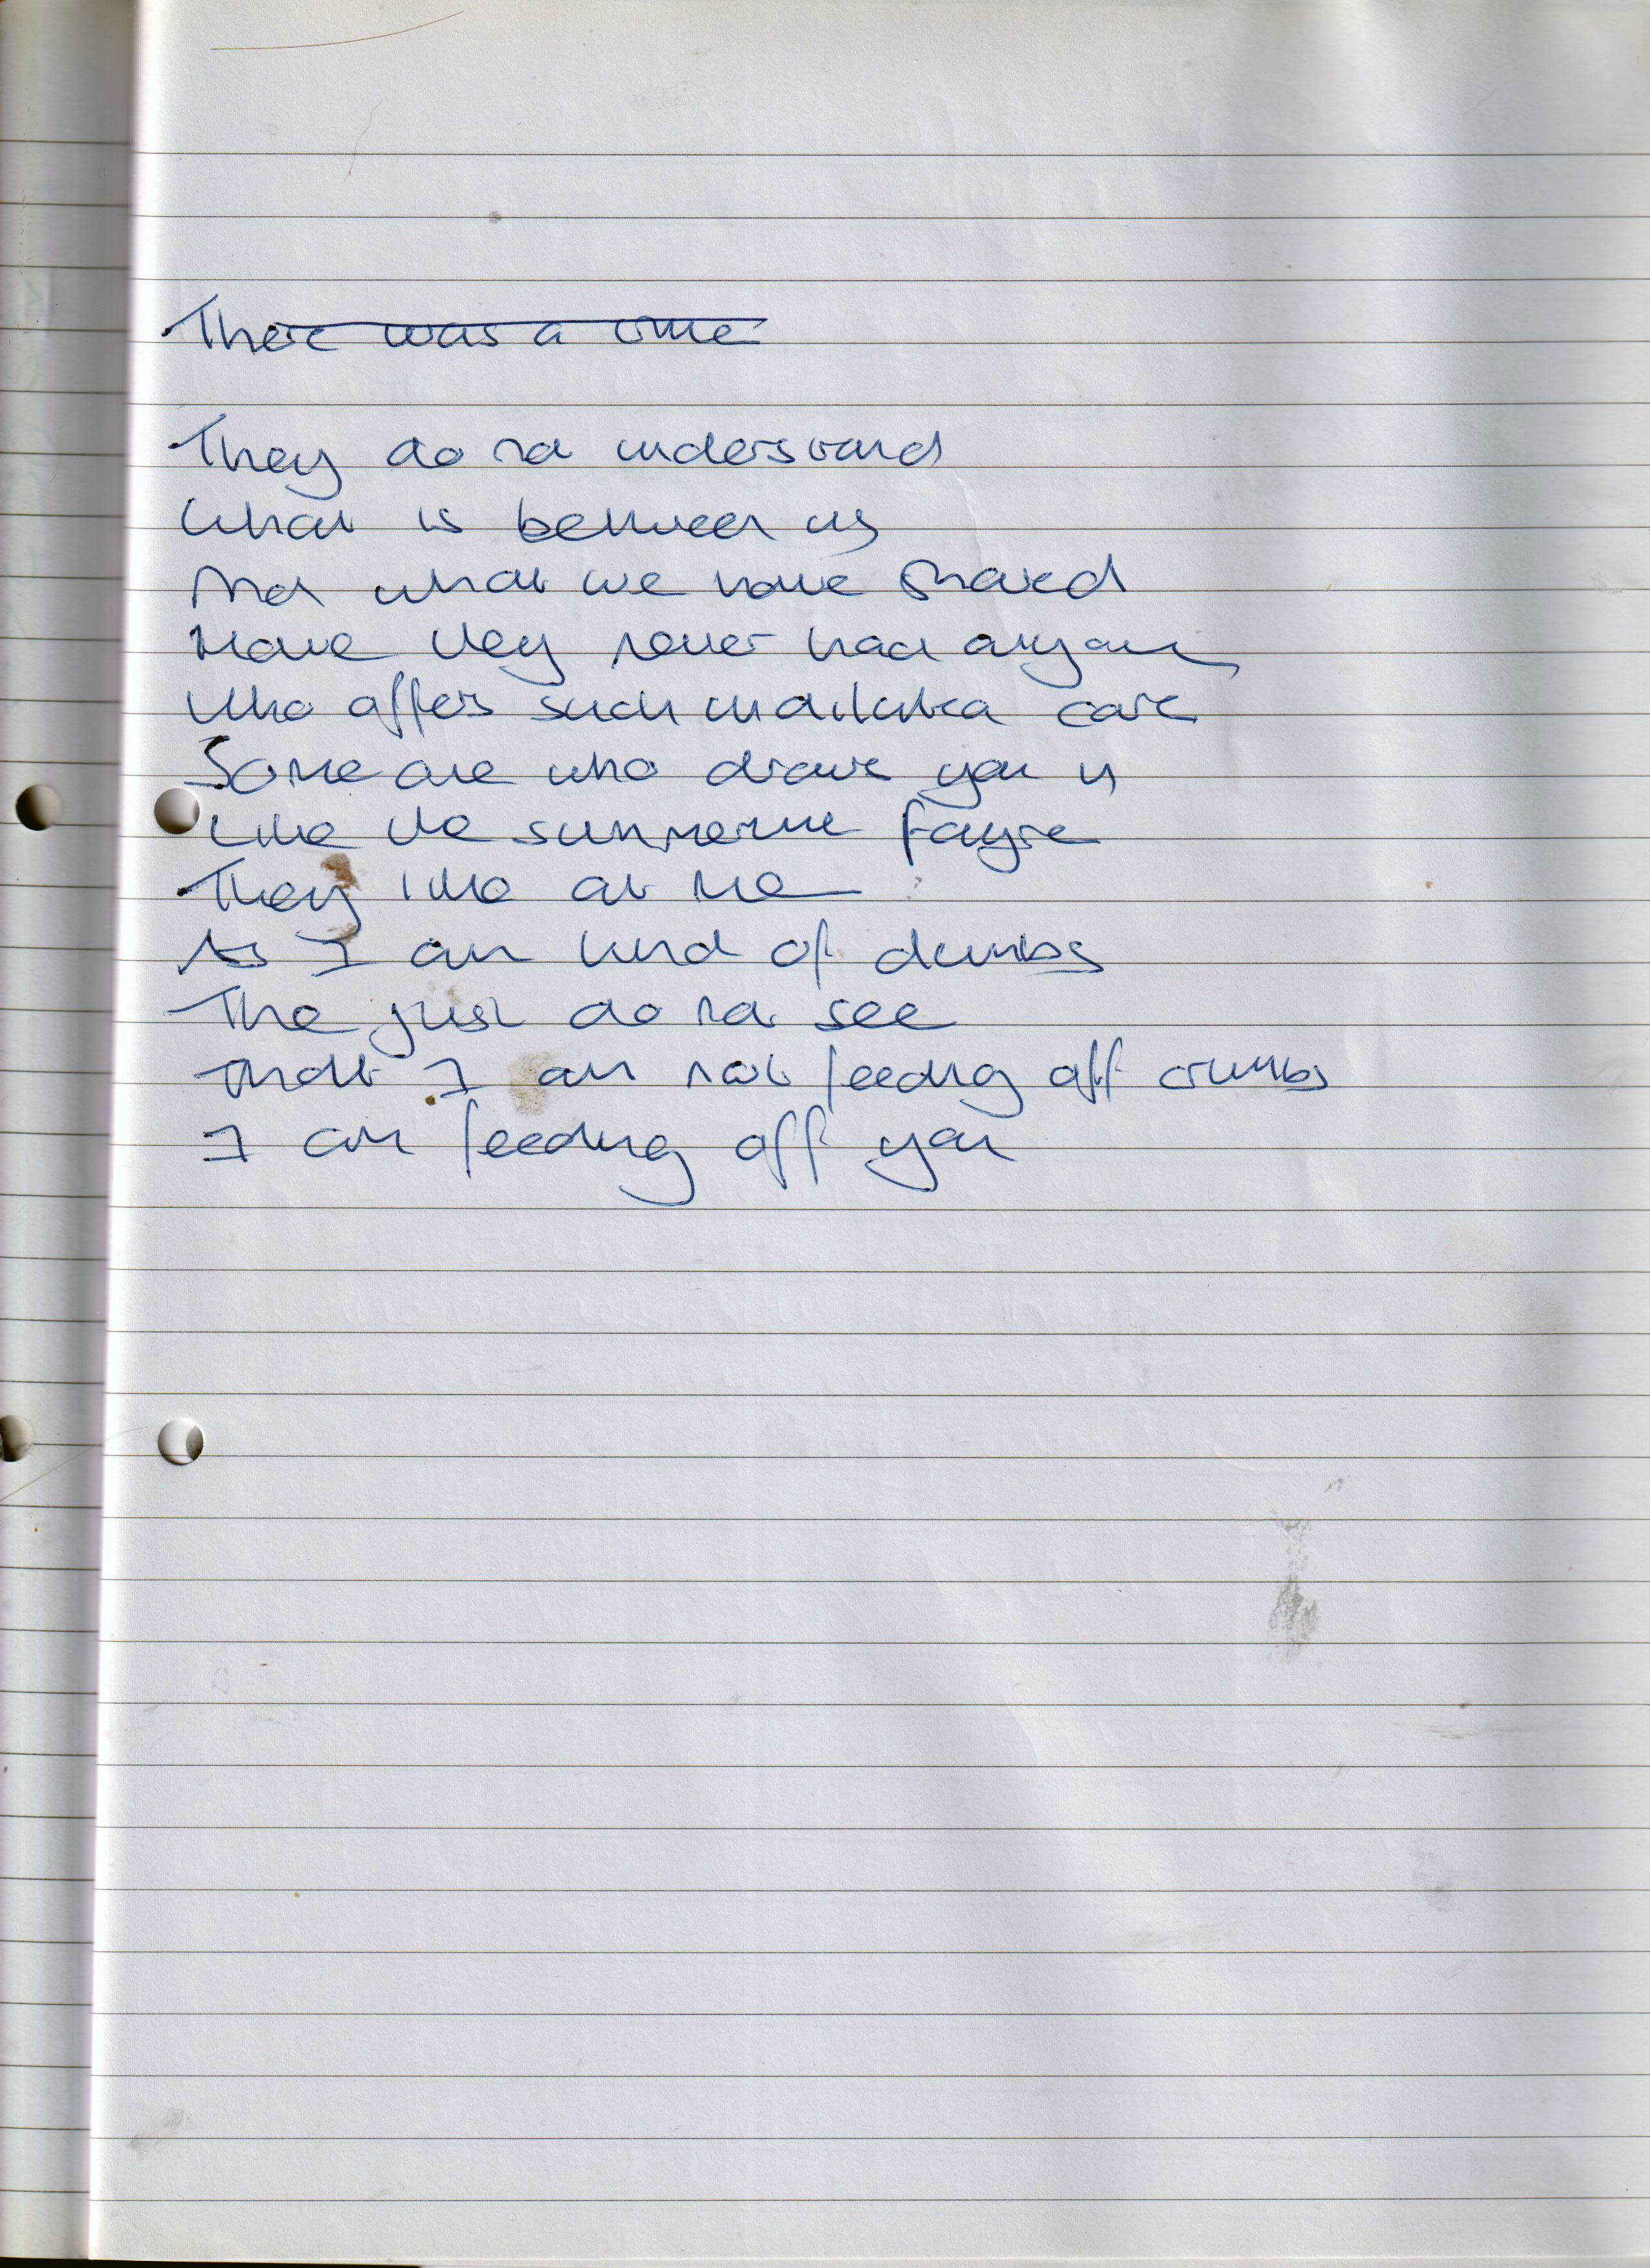 There was a time
They do not understand
What is between us
And what we have shared
Have they never had anyone
Who offers such undiluted care
Some one who draws you in
Like the summertime fayre
They like at me
As I am kind of dumbs
The just do not see
That I am not feeding off crumbs
I am feeding off you